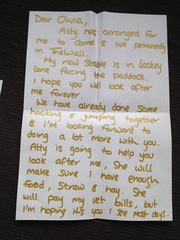 Dear Olivia,
Atty has arranged for
me to come & live permanently
in Thelwall.
My new Stable is in Laskey
Lane facing the paddock.
I hope you will look after
me forever.
We have already done Some
hacking & jumping together
& I'm looking forward to
doing a lot more with you.
Atty is going to help you
look after me, She will
make sure I have enough
food, Straw & hay. She
will pay my vet bills, but
I'm hoping its you I see most days.